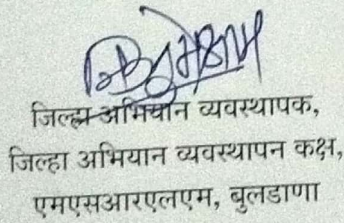 जिल्हा अभियान व्यवस्थापक,
जिल्हा अभियान व्यवस्थापन कक्ष,
एमएसआरएलएम, बुलडाणा